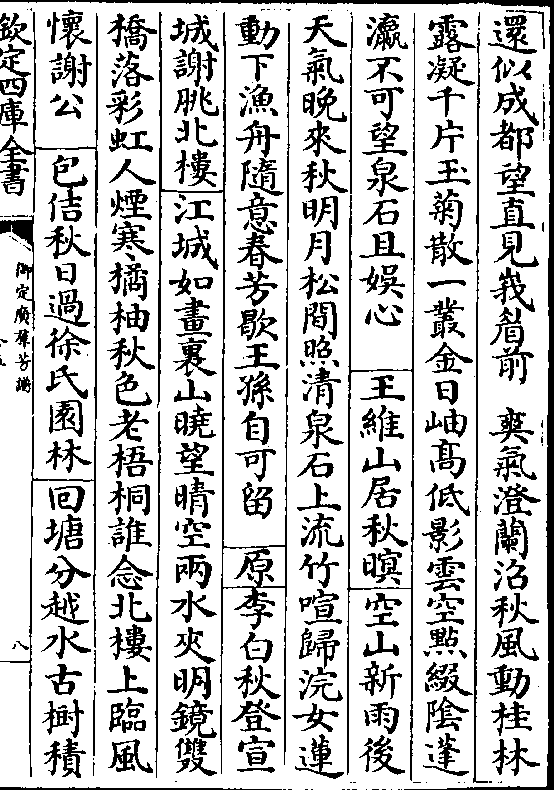 還似成都望直見峩眉前　爽氣澄蘭沼秋風動桂林
露凝千片玉菊散一叢金日岫髙低影雲空㸃綴陰蓬
瀛不可望泉石且娯心　王維山居秋暝空山新雨後
天氣晚來秋明月松間照清泉石上流竹喧歸浣女蓮
動下漁舟隨意春芳歇王孫自可留　原李白秋登宣
城謝脁北樓江城如畫裏山曉望晴空兩水夾明鏡雙
橋落彩虹人煙寒橘柚秋色老梧桐誰念北樓上臨風
懷謝公　包佶秋日過徐氏園林回塘分越水古樹積
欽定四庫全書
御定廣羣芳譜
八